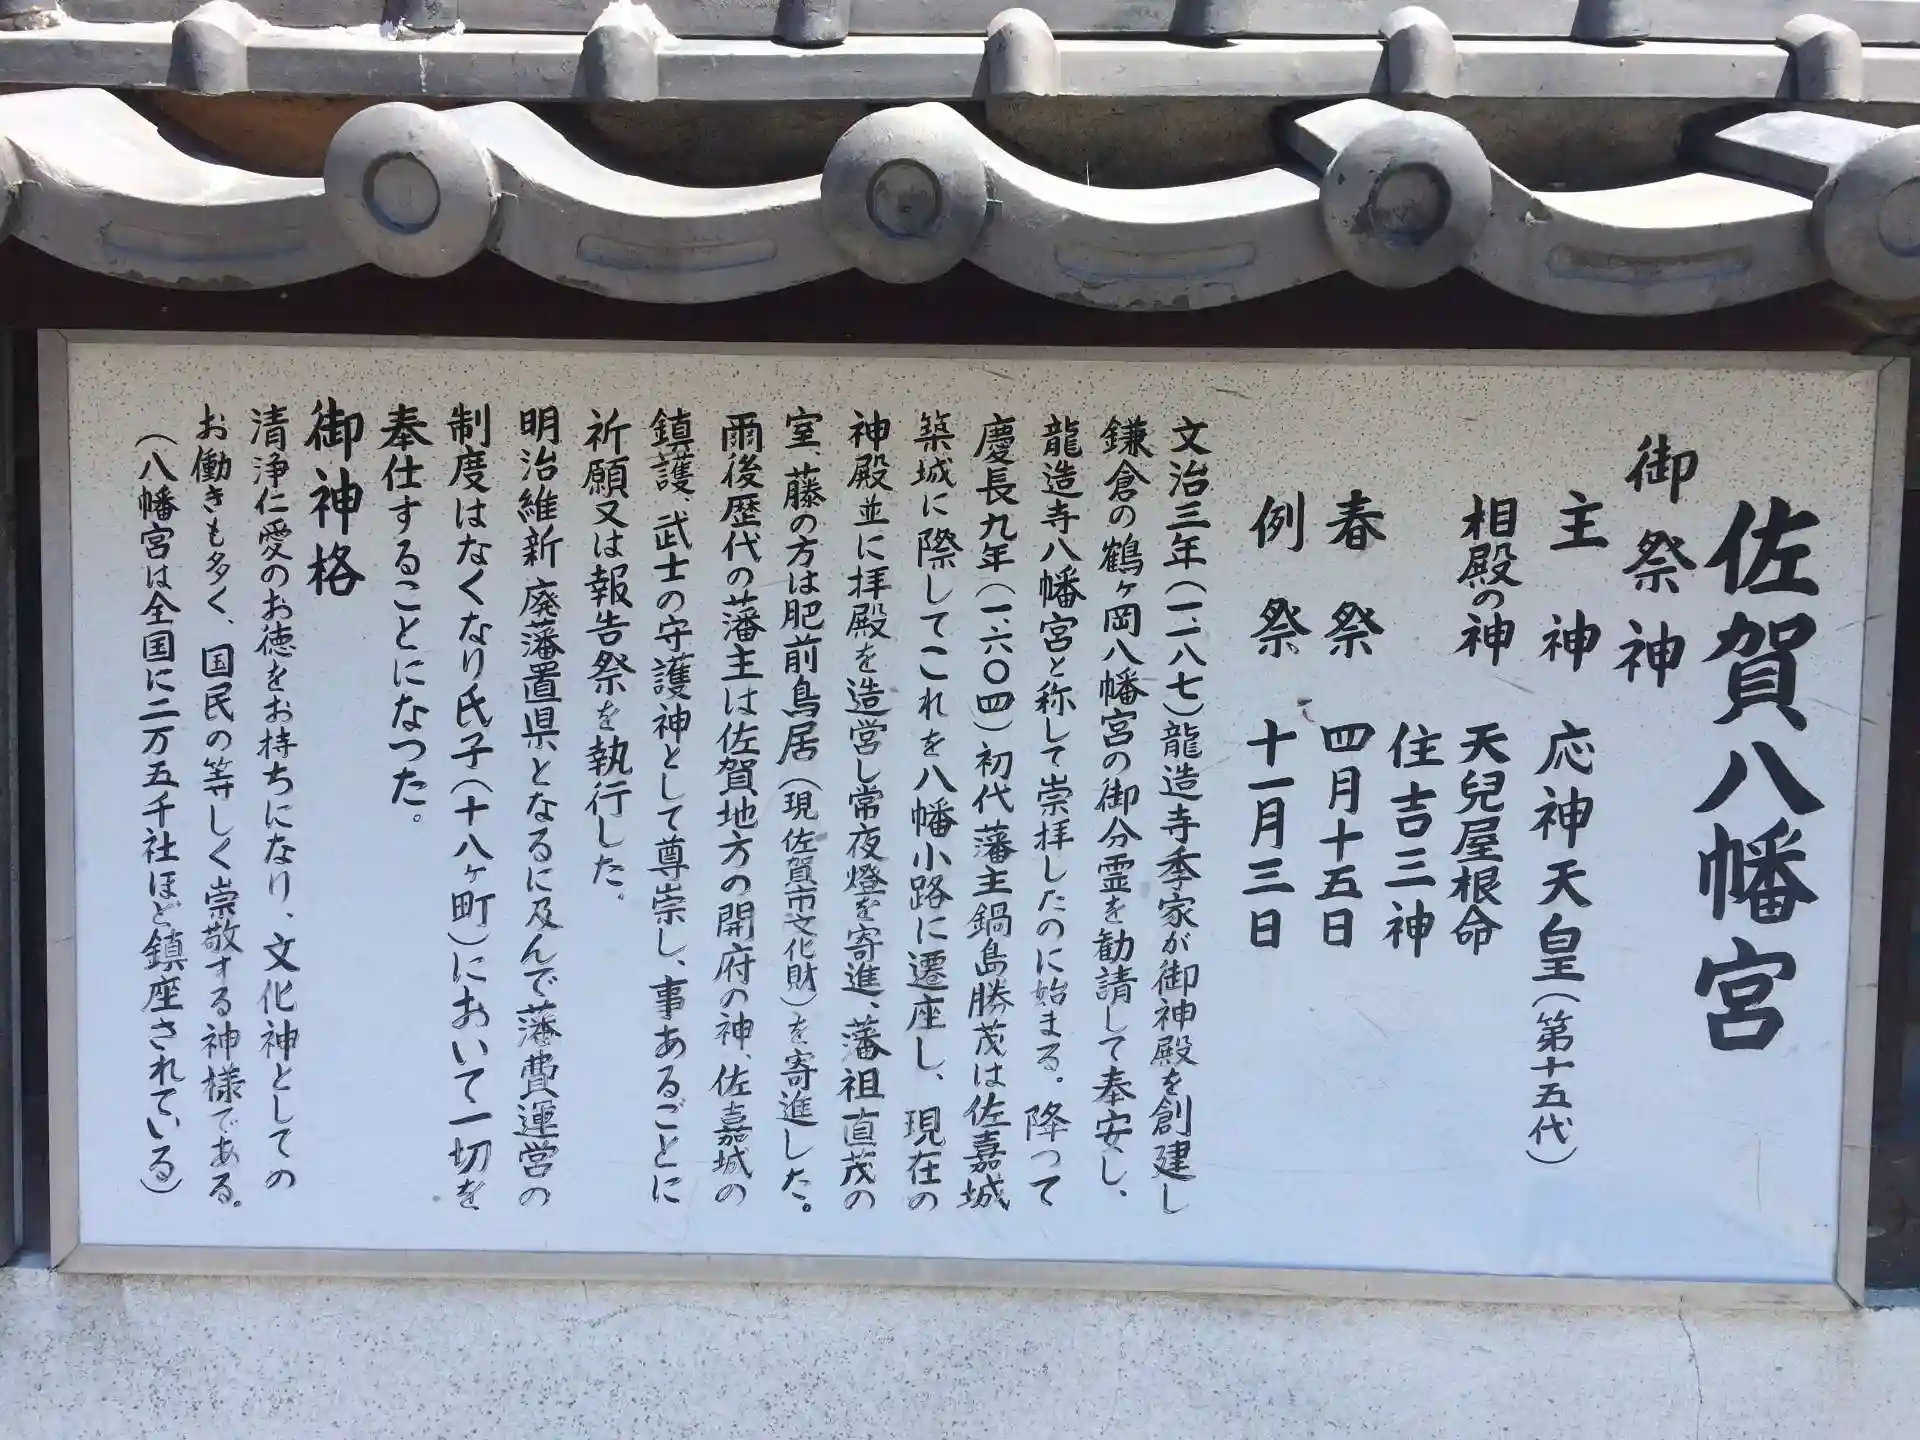 佐賀八幡宮
御祭神
主神 応神天皇（第十五代）
相殿の神 天兒屋根命
住吉三神
春祭 四月十五日
例祭 十一月三日
文治三年（一、一八七）龍造寺季家が御神殿を創建し
鎌倉の鶴ヶ岡八幡宮の御分霊を勧請して奉安し、
龍造寺八幡宮と称して崇拝したのに始まる。降って
慶長九年（一、六〇四）初代藩主鍋島勝茂は佐嘉城
築城に際してこれを八幡小路に遷座し、現在の
神殿並に拝殿を造営し常夜燈を寄進、藩祖直茂の
室、藤の方は肥前鳥居（現佐賀市文化財）を寄進した。
爾後歴代の藩主は佐賀地方の開府の神、佐嘉城の
鎮護、武士の守護神として尊崇し、事あるごとに
祈願又は報告祭を執行した。
明治維新廃藩置県となるに及んで藩費運営の
制度はなくなり氏子（十八ヶ町）において一切を
奉仕することになつた。
御神格
清浄仁愛のお徳をお持ちになり、文化神としての
お働きも多く、国民の等しく崇敬する神様である。
（八幡宮は全国に二万五千社ほど鎮座されている）